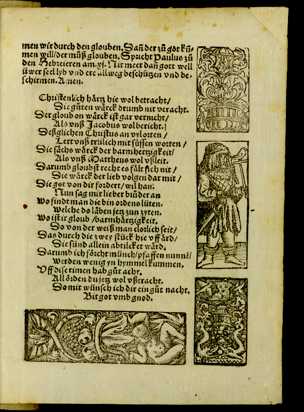 men wir durch den glouben. Dañ der zů got kũ-
men will/ der můß glouben. Spricht Paulus zů
den Hebreieren am .xj. Nit meer dañ gott well
üwer seel lyb und ere allweg beschützen und be-
schirmen. Amen.
Christenlich hårtz hie wol betracht/
Die gůten wårck drumb nit veracht.
Der gloub on wårck ist gar vernicht/
Als vnß Jacobus wol bericht.
Deßglichen Christus an vil orten/
Lert vnß trülich mit süssen worten/
Die sächs wårck der barmhertzigkeit/
Als vnß Mattheus wol vßleit.
Darumb gloubst recht es fält sich nit/
Die wårck der lieb volgen dar mit/
Die got von dir fordert/ wil han.
Nun sag mir lieber bůnder an
Wo findt man die bin ordens lüten.
Welche do läben jetz zun zyten.
Wo ist gloub/ barmhärzigkeit.
So von der weiß man
Das durch die zwey stück hie vff ård/
Die sünd allein abtilcket wård.
Darumb ich förcht münch/ pfaffen nunnē/
Werden wenig in hymmel kummen.
Vff dise timen hab gůt acht.
All orden du jetz wol vßtracht.
So mit wünsch ich dir ein gůt nacht.
Bit got vmb gnod.